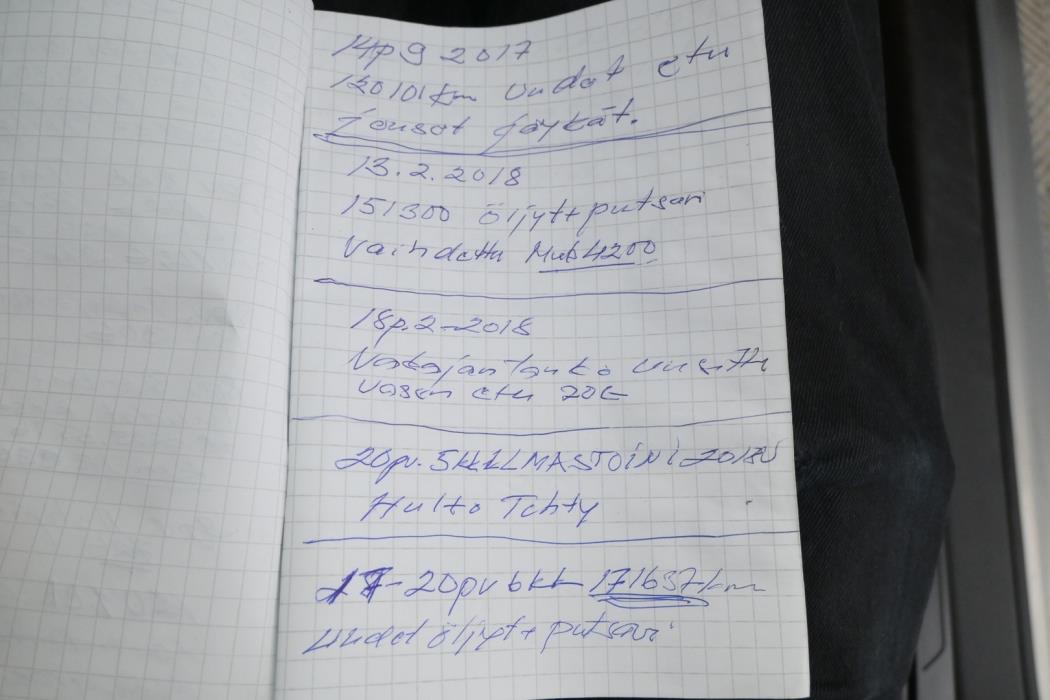 14p 9 2017
120101km Uudet etu
Jouset jäykät.
13.2.2018
151300 öljyt+putsari
Vaihdettu 4200
18p.2-2018
Vakajantanko uusittu
vasen etu 20€
20pv. 5kkILMASTOINI 2018V
Hulto Tehty
17-20pv 6kk 171637km
uudet öljyt+putsari